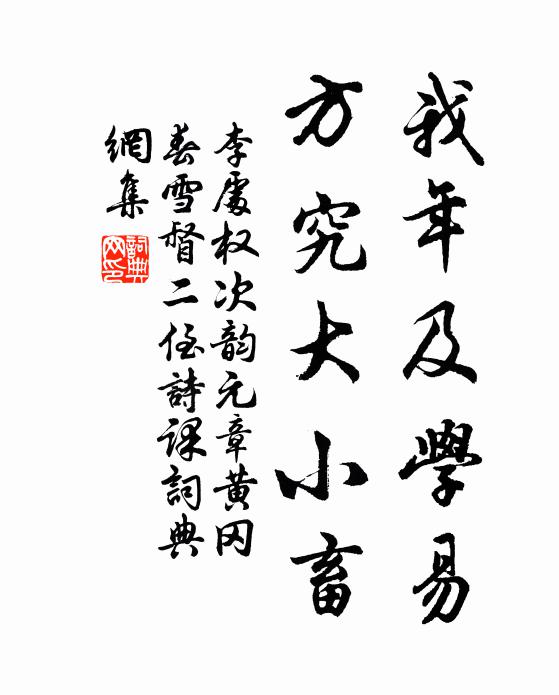 我年及學易
方究大小畜
李處权次韵元章黄冈
春雪督二侄詩课詞典
網集
詞典網印